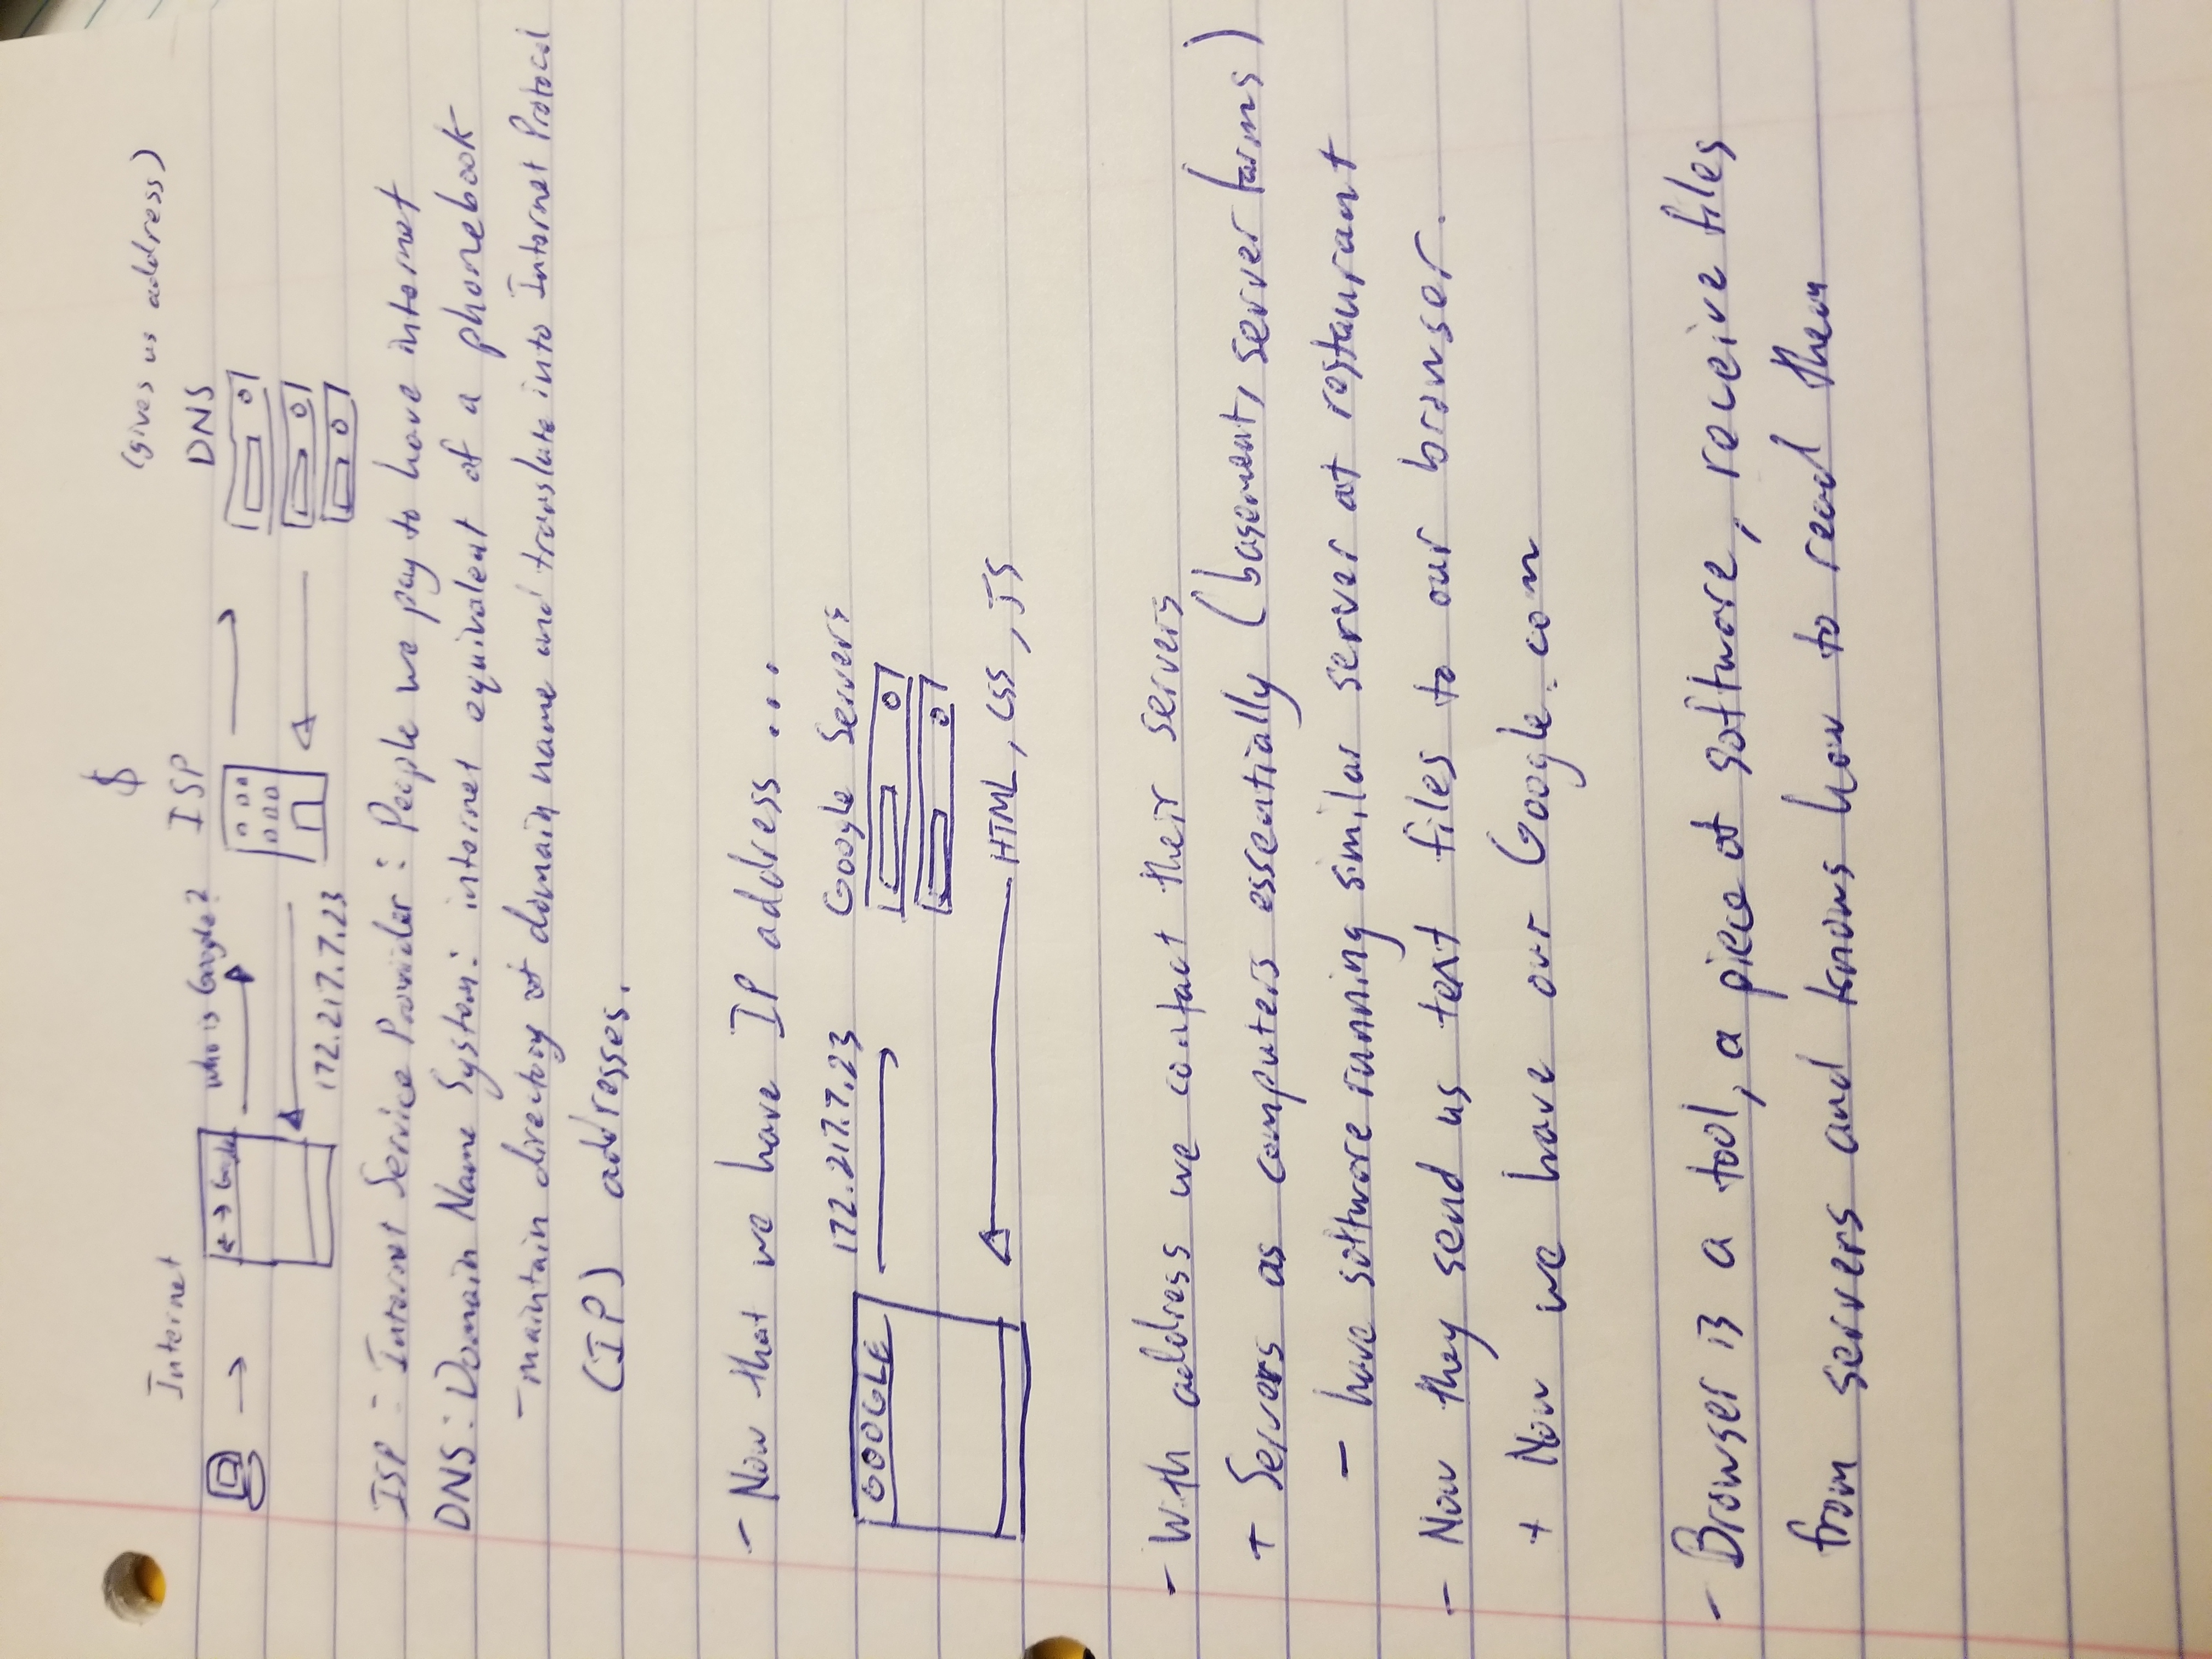 $
(gives us address)
Internet
ISP
DNS
← → Google
who is Google?
172.217.7.23
ISP = Internet Service Provider : People we pay to have internet
DNS : Domain Name System : internet equivalent of a phonebook
- maintain directory of domain name and translate into Internet Protocol
(IP) addresses.
- Now that we have IP address ...
172.217.7.23
Google Servers
GOOGLE
HTML, CSS, JS
- With address we contact their servers
+ Servers as computers essentially (basement, server farms)
- have software running similar server at restaurant
- Now they send us text files to our browser.
+ Now we have our Google.com
- Browser is a tool, a piece of software, receive files
from servers and knows how to read them